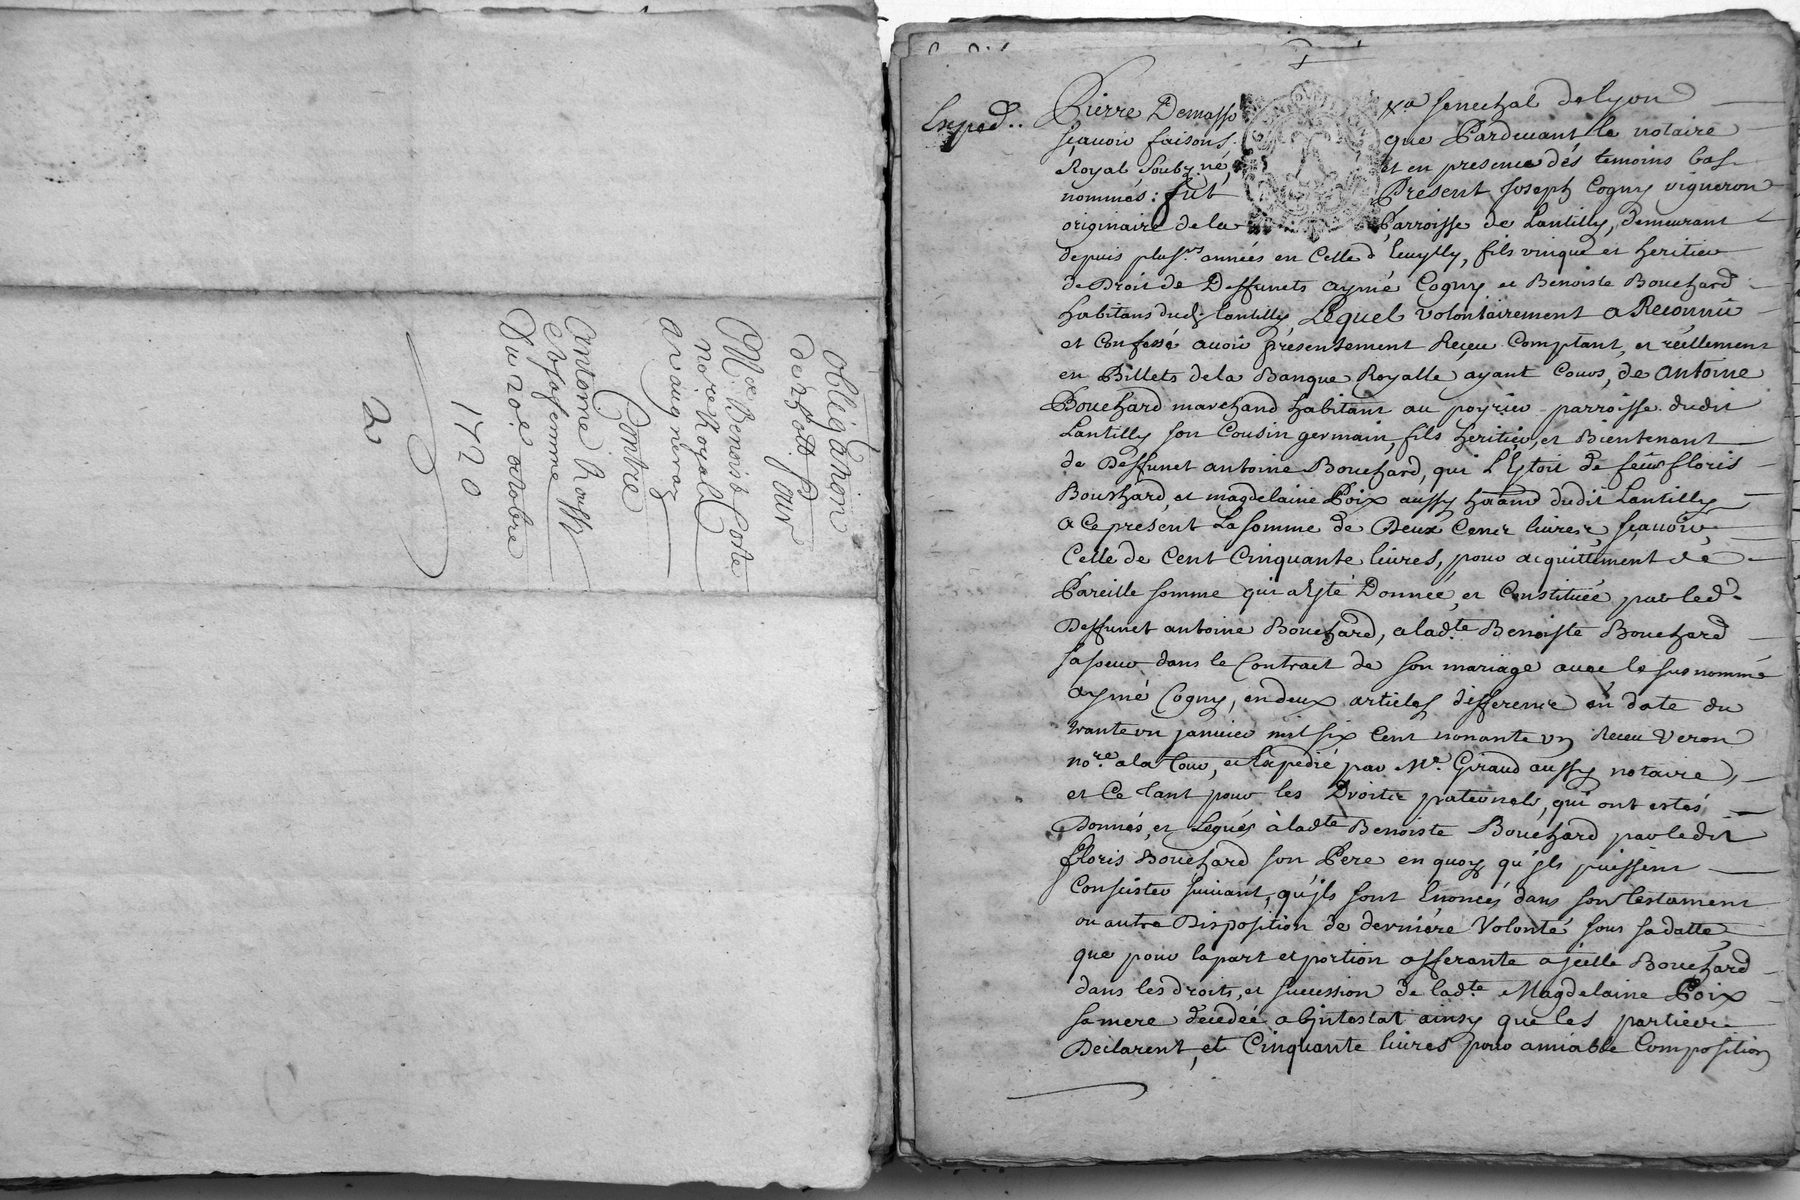 obligation
de 175tt pour
Me Benoist Coste
nore Royal
a vaugneray
Contre
Antoine
et sa femme
Du 20e. octobre
1720
2
Exped..
Pierre Demasso xa senechal de lyon
sçavoir faisons que Pardevant le notaire
Royal soubz.né, et en presence dés temoins bas
nommés: fut Présent Joseph Cogny vigneron
originaire de la Parroisse de Lantilly, demeurant
depuis plus.rs années en Celle d'Eveylly, fils unique et heritier
de Droit de Deffunets aymé Cogny et Benoiste Bouchard
habitans dud. Lantilly, Lequel volontairement a Reconnu
et Confessé avoir présentement Receu Comptant, et réellement
en Billets de la Banque Royalle ayant Cours, de Antoine
Bouchard marchand habitant au poyrier parroisse dudit
Lantilly son Cousin germain, fils heritier, et Bientenant
de Deffunet antoine Bouchard, qui L'Estoit de feus floris
Bouchard, et magdelaine Poix aussy dudit Lantilly
a ce présent La somme de Deux Cent livres, sçavoir,
Celle de Cent Cinquante livres, pour acquittement de
Pareille somme qui a Esté Donnée, et Constituée par led.
Deffunet antoine Bouchard, a lad.te Benoiste Bouchard
sa soeur dans le Contract de son mariage avec le susnommé
aymé Cogny, en deux articles differents en date du
trante un janvier mil six Cent nonante un Receu Veron
no.re a la Tour, et Expedié par Me. Giraud aussy notaire,
et Ce Tant pour les Droits paternels, qui ont estés
Donnés, et Legués à ladte Benoiste Bouchard par ledit
floris Bouchard son Pere en quoy qu'ils puissent
Consister suivant, qu'ils sont Enoncés dans son testament
ou autre Disposition de derniére Volonté sous sa datte,
que pour la part et portion afferante a jcelle Bouchard
dans les droits, et succession de lad.te Magdelaine Poix
sa mere décédée abjntestat ainsy que les parties
Declarent, et Cinquante livres pour amiable Composition